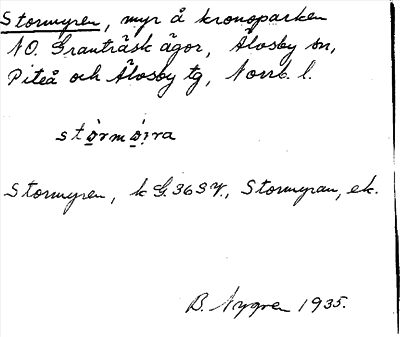 Stormyren, myr å kronoparken
NO. Granträsk ägor, Älvsby sn,
Piteå och Älvsby tg, Norrb. l.
Stormyren, k G. 36 SV., Stormyran, ek.
B. Nygren 1935.